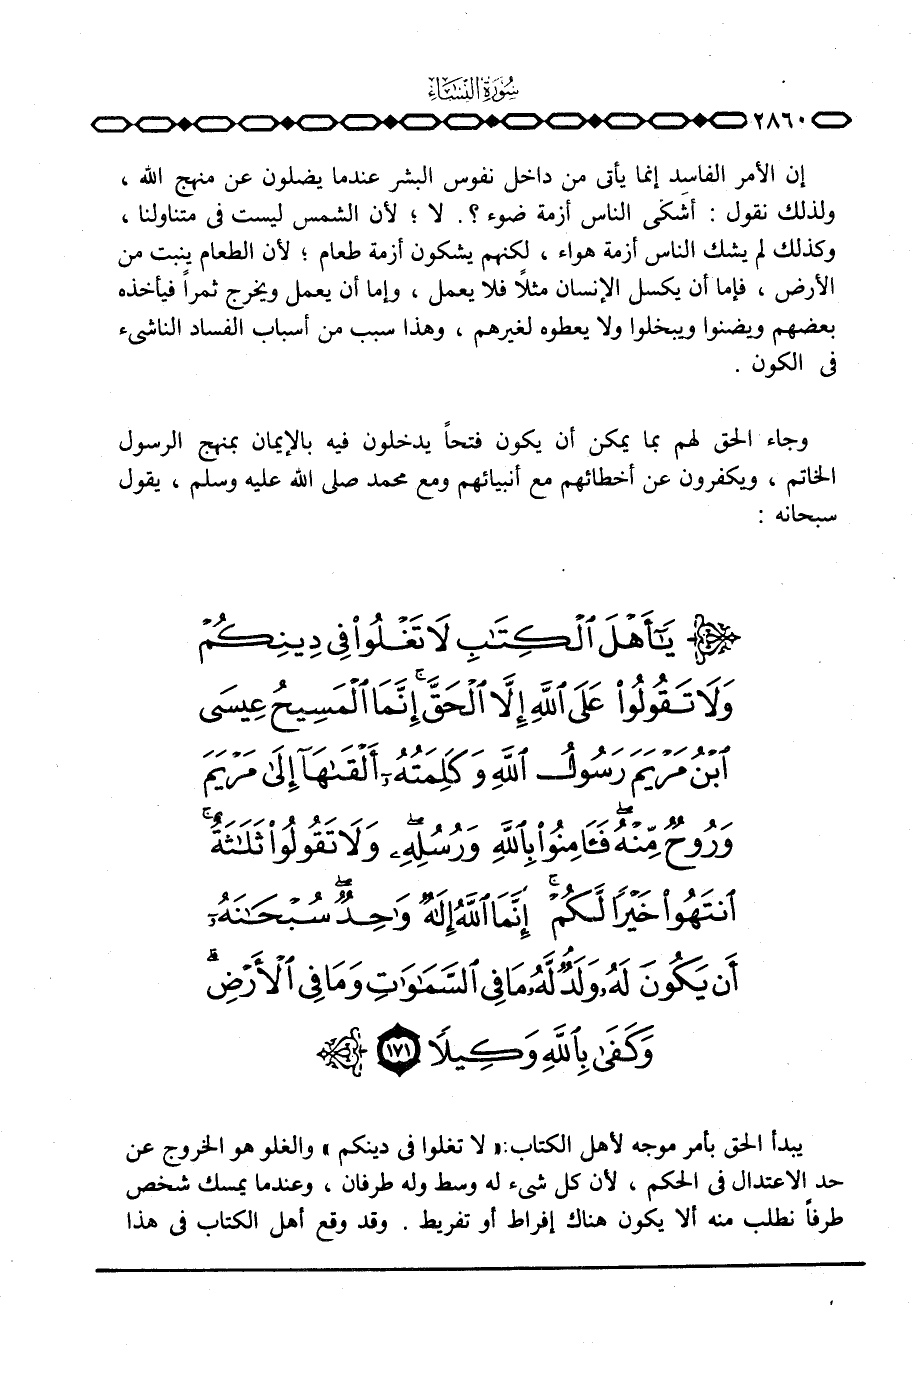 سُورَةُ النِّسَاءِ
٢٨٦٠
إن الأمر الفاسِد إنما يأتى من داخل نفوس البشر عندما يضلون عن منهج الله ،
ولذلك نقول : أشكَى الناس أزمة ضوء ؟. لا ؛ لأن الشمس ليست فى متناولنا ،
وكذلك لم يشك الناس أزمة هواء ، لكنهم يشكون أزمة طعام ؛ لأن الطعام ينبت من
الأرض ، فإما أن يكسل الإنسان مثلاً فلا يعمل ، وإما أن يعمل ويخرج ثمراً فيأخذه
بعضهم ويضنوا ويبخلوا ولا يعطوه لغيرهم ، وهذا سبب من أسباب الفساد الناشىء
فى الكون .
وجاء الحق لهم بما يمكن أن يكون فتحاً يدخلون فيه بالإيمان بمنهج الرسول
الخاتم ، ويكفرون عن أخطائهم مع أنبيائهم ومع محمد صلى الله عليه وسلم ، يقول
سبحانه :
يَـٰٓأَهْلَ ٱلْكِتَـٰبِ لَا تَغْلُوا۟ فِى دِينِكُمْ
وَلَا تَقُولُوا۟ عَلَى ٱللَّهِ إِلَّا ٱلْحَقَّ ۚ إِنَّمَا ٱلْمَسِيحُ عِيسَى
ٱبْنُ مَرْيَمَ رَسُولُ ٱللَّهِ وَكَلِمَتُهُۥٓ أَلْقَىٰهَآ إِلَىٰ مَرْيَمَ
وَرُوحٌ مِّنْهُ ۖ فَـَٔامِنُوا۟ بِٱللَّهِ وَرُسُلِهِۦ ۖ وَلَا تَقُولُوا۟ ثَلَـٰثَةٌ ۚ
ٱنتَهُوا۟ خَيْرًا لَّكُمْ ۚ إِنَّمَا ٱللَّهُ إِلَـٰهٌ وَٰحِدٌ ۖ سُبْحَـٰنَهُۥٓ
أَن يَكُونَ لَهُۥ وَلَدٌ ۘ لَّهُۥ مَا فِى ٱلسَّمَـٰوَٰتِ وَمَا فِى ٱلْأَرْضِ ۗ
وَكَفَىٰ بِٱللَّهِ وَكِيلًا ١٧١
يبدأ الحق بأمر موجه لأهل الكتاب:« لا تغلوا فى دينكم » والغلو هو الخروج عن
حد الاعتدال فى الحكم ، لأن كل شىء له وسط وله طرفان ، وعندما يمسك شخص
طرفاً نطلب منه ألا يكون هناك إفراط أو تفريط . وقد وقع أهل الكتاب فى هذا